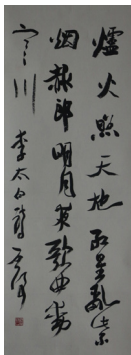 爐火照天地红星亂紫
烟赧郎明月夜歌曲動
寒川 李太白詩